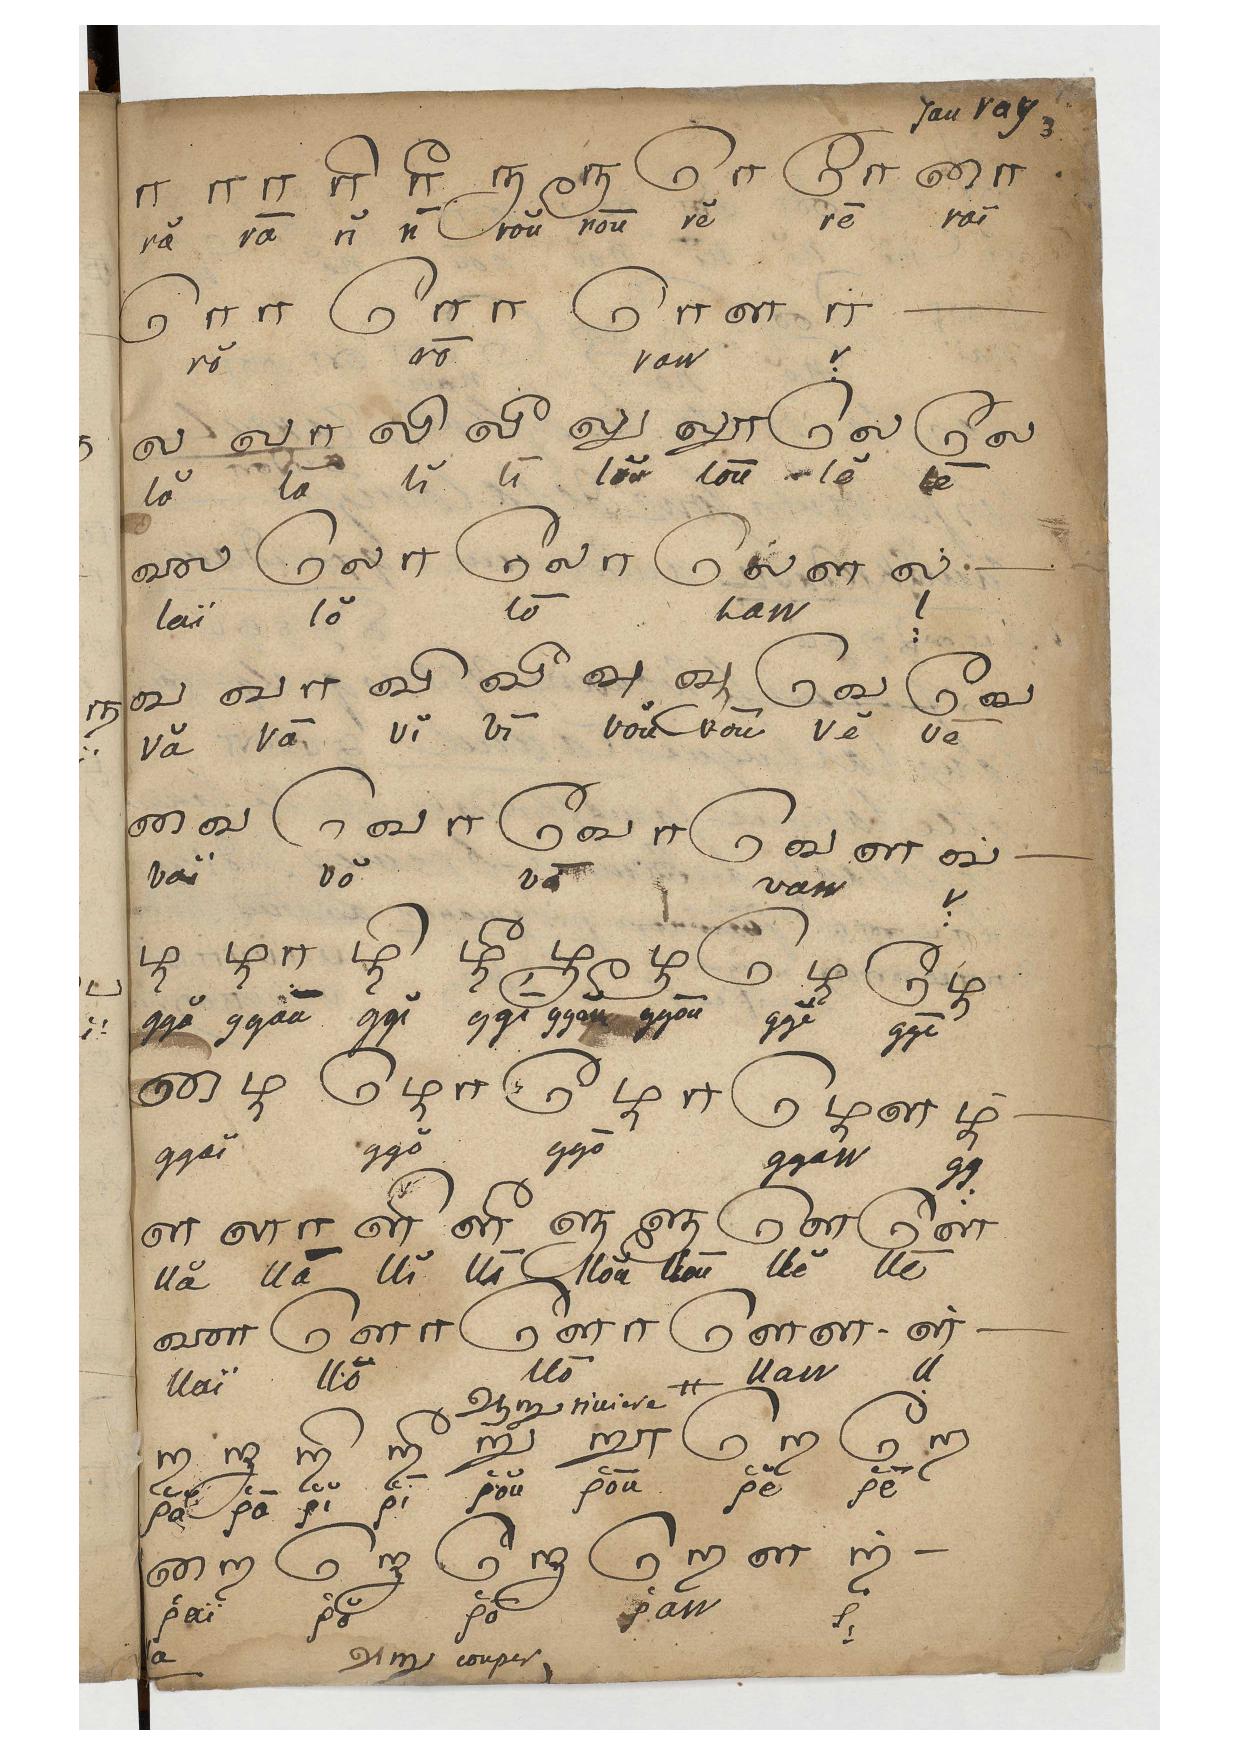 Jau ray 3
ர ரா ரி ரீ ரு ரூ ரெ ரே ரை
ră rā rĭ rī roŭ roū rĕ rē raï
ரொ ரோ ரௌ ர்
rŏ rō raw ṛ
ல லா லி லீ லு லூ லெ லே
lă lā lĭ lī loŭ loū lĕ lē
லை லொ லோ லௌ ல்
laï lŏ lō Law l
வ வா வி வீ வு வூ வெ வே
Vă Vā vĭ vī voŭ voū Vĕ vē
வை வொ வோ வௌ வ்
vaï vŏ vō vaw v
ழ ழா ழி ழீ ழு ழூ ழெ ழே
ggă ggāā ggĭ ggī ggoŭ ggoū ggĕ ggē
ழை ழொ ழோ ழௌ ழ்
ggaï ggŏ ggō ggaw gg
ள ளா ளி ளீ ளு ளூ ளெ ளே
llă llā llĭ llī lloŭ lloū llĕ llē
ளை ளொ ளோ ளௌ ள்
llaï llŏ llō llaw ll
ஆறு riviere
ற றா றி றீ று றூ றெ றே
ṙă ṙā ṙĭ ṙī ṙoŭ ṙoū ṙĕ ṙē
றை றொ றோ றௌ ற்
ṙaï ṙŏ ṙō ṙaw ṙ
அறு couper